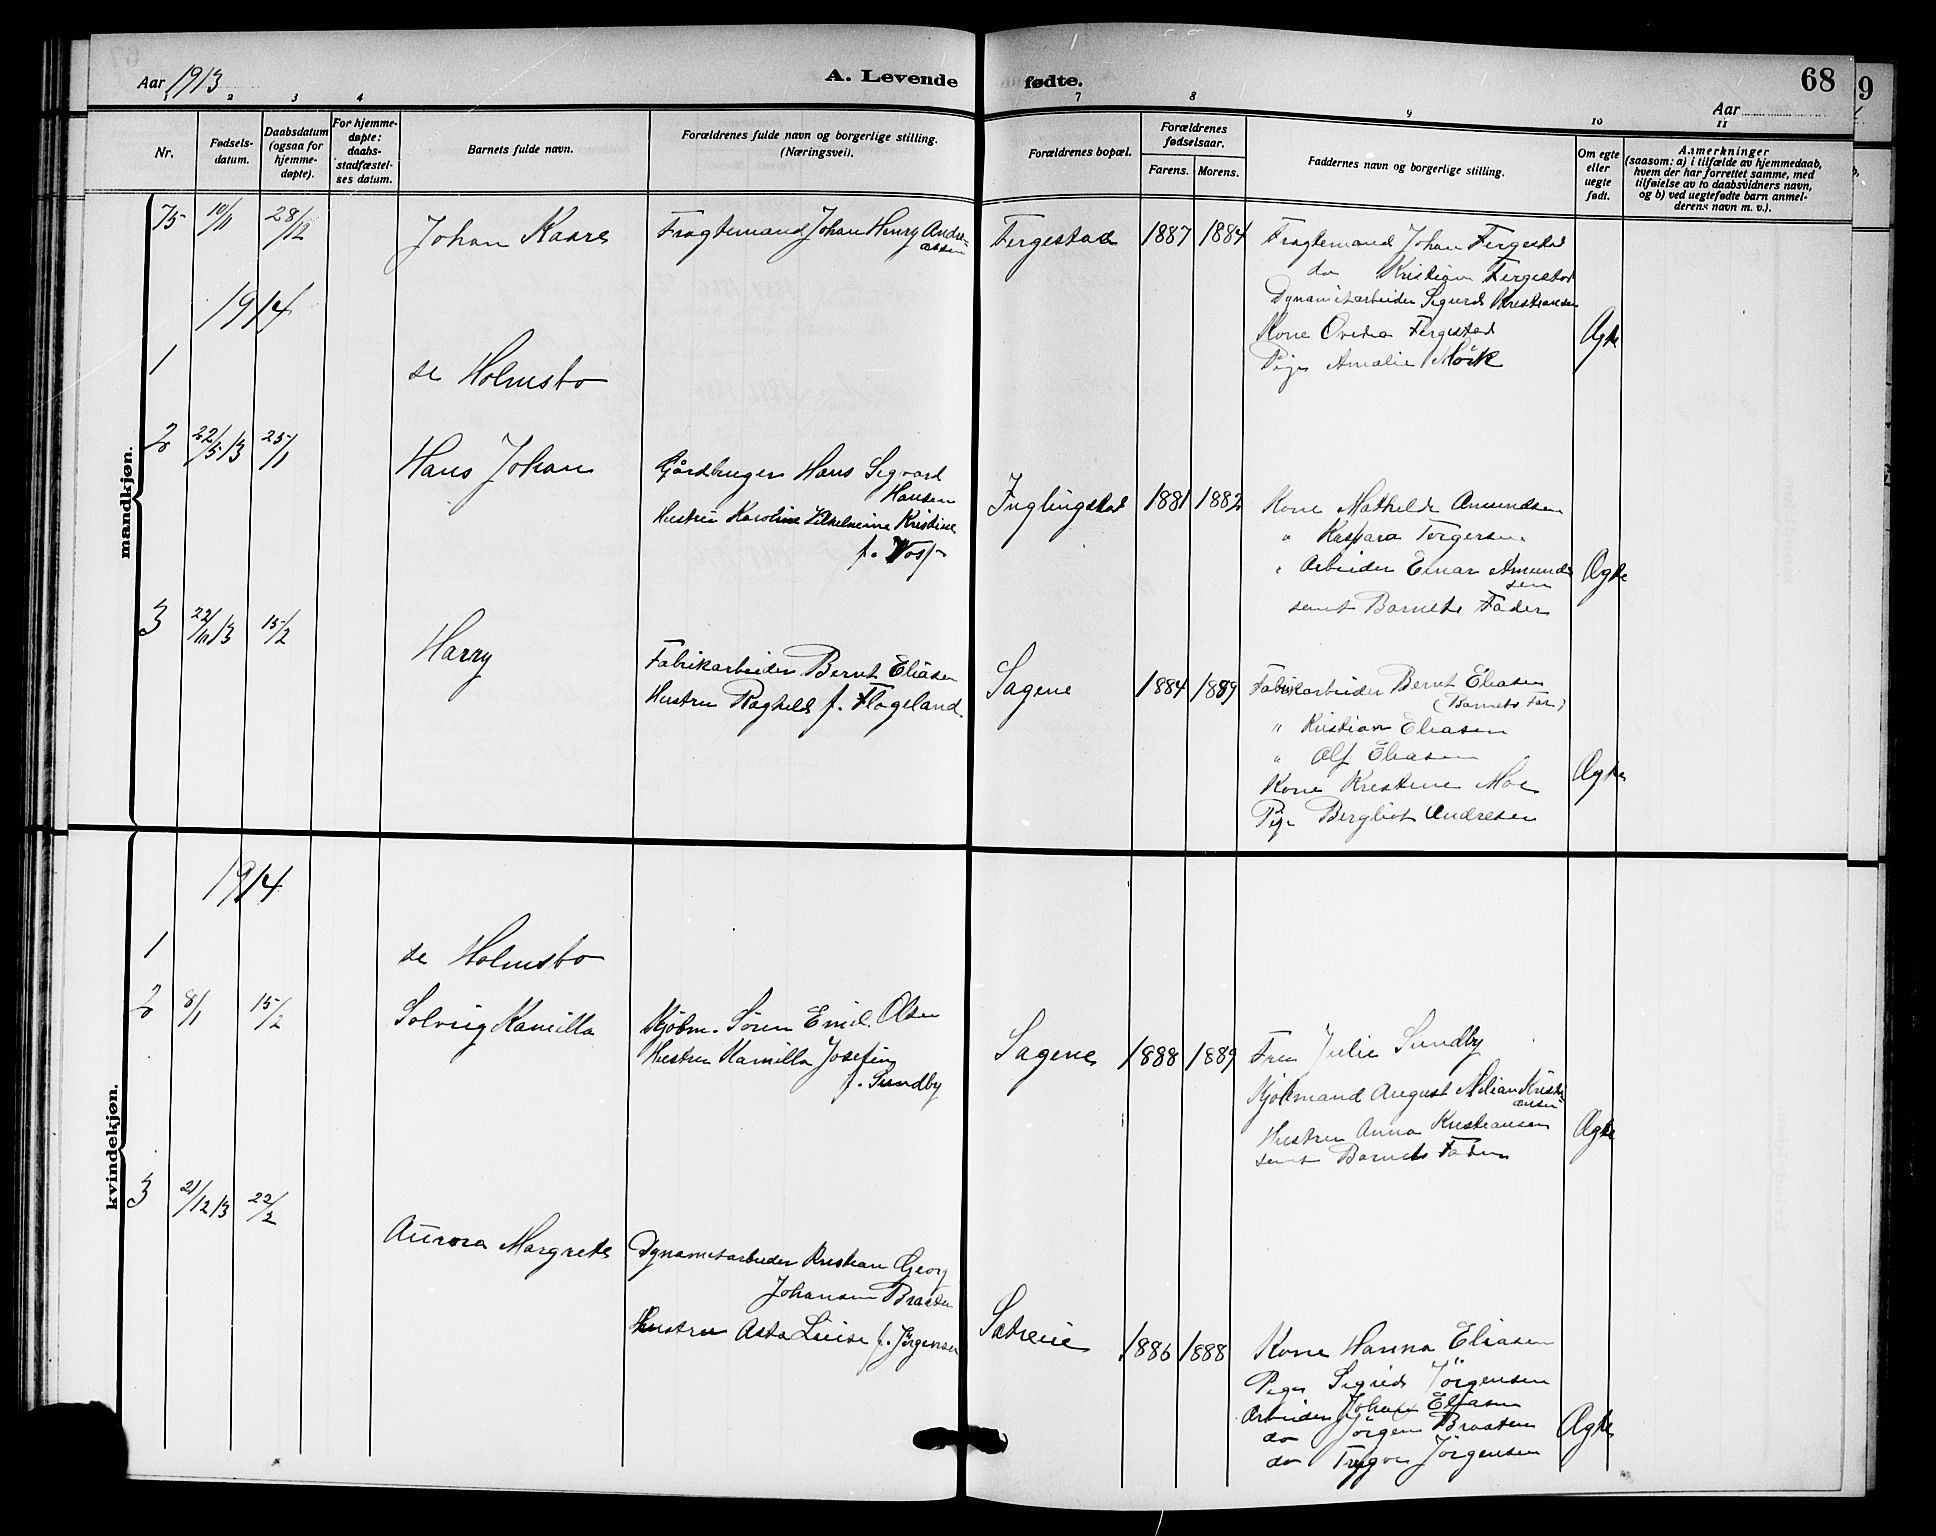 Aar 1913
A. Levende fødte.
68
Aar
1 2 3 4 7 8 9 10 11
Nr.
Fødsels-
datum.
Daabsdatum
(ogsaa for
hjemme-
døpte).
For hjemme-
døpte:
daabs-
stadfæstel-
ses datum.
Barnets fulde navn.
Forældrenes fulde navn og borgerlige stilling.
(Næringsvei).
Forældrenes bopæl.
Forældrenes
fødselsaar.
Farens. Morens.
Faddernes navn og borgerlige stilling.
Om egte
eller
uegte
født.
Anmerkninger
(saasom: a) i tilfælde av hjemmedaab,
hvem der har forrettet samme, med
tilføielse av to daabsvidners navn,
og b) ved uegtefødte barn anmel-
derens navn m. v.).
mandkjøn.
75 10/11 28/12 Johan Kaare
Fragtemand Johan Henry Andre-
assen
Fergestad 1887 1884
Fragtemand Johan Fergestad
do Kristian Fergestad
Dynamitarbeider Sigurd Kristiansen
Kone Ovedia Fergestad
Pige Amalie Mörk
Ægte
1914
1 se Holmsbo
2 22/5 13 25/1 Hans Johan
Gårdbruger Hans Sigvard
Hansen
Hustru Karoline Vilhelmine Kristine
f. Voss
Inglingstad 1881 1882
Kone Mathilde Amundsen
" Kaspara Torgersen
" Arbeider Einar Amund-
sen
samt Barnets Fader
Ægte
3 22/11 13 15/2 Harry
Fabrikarbeider Bernt Eliasen
Hustru Raghild f. Flageland
Sagene 1884 1889
Fabrikarbeider Bernt Eliasen
(Barnets Far)
" Kristian Eliasen
" Alf Eliasen
Kone Kristine Moe
Pige Bergliot Andresen
Ægte
kvindekjøn.
1914
1 se Holmsbo
2 8/1 15/2 Solveig Kamilla
Kjöbm. Sören Emil Olsen
Hustru Kamilla Josefine
f. Sundby
Sagene 1888 1889
Fru Julie Sundby
Kjöbmand August Milian Kristi-
ansen
Hustru Anna Kristiansen
samt Barnets Fader
Ægte
3 21/12 13 22/2 Aurora Margrete
Dynamitarbeider Kristian Georg
Johansen Braaten
Hustru Asta Luise f. Jörgensen
Sætreie 1886 1888
Kone Hanna Eliasen
Pige Sigrid Jörgensen
Arbeider Johan Eliasen
do Jörgen Braaten
do Trygve Jörgensen
Ægte
9